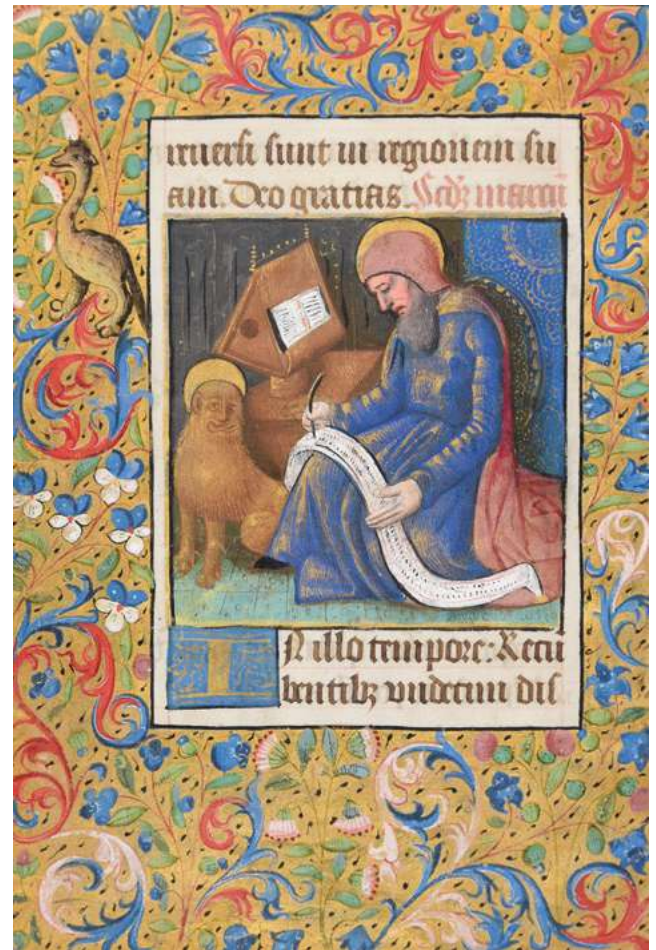 uersi sunt in regionem su
am. Deo gratias. Scdꝫ marcū
IN illo tempore: Recū
bentibꝫ undecim dis